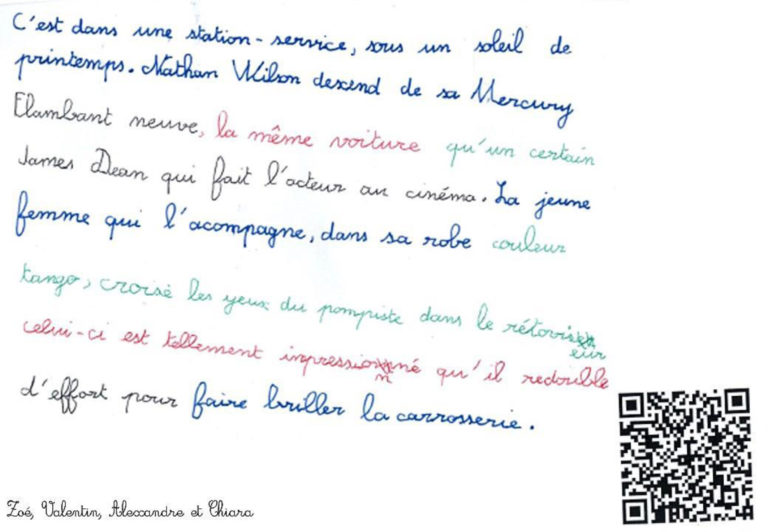 C'est dans une station-service, sous un soleil de
printemps. Nathan Wilson descend de sa Mercury
Flambant neuve, la même voiture qu'un certain
James Dean qui fait l'acteur au cinéma. La jeune
femme qui l'acompagne, dans sa robe couleur
tango, croise les yeux du pompiste dans le rétoviseur
celui-ci est tellement impressionné qu'il redouble
d'effort pour faire briller la carrosserie.
Zoé, Valentin, Alexandre et Chiara